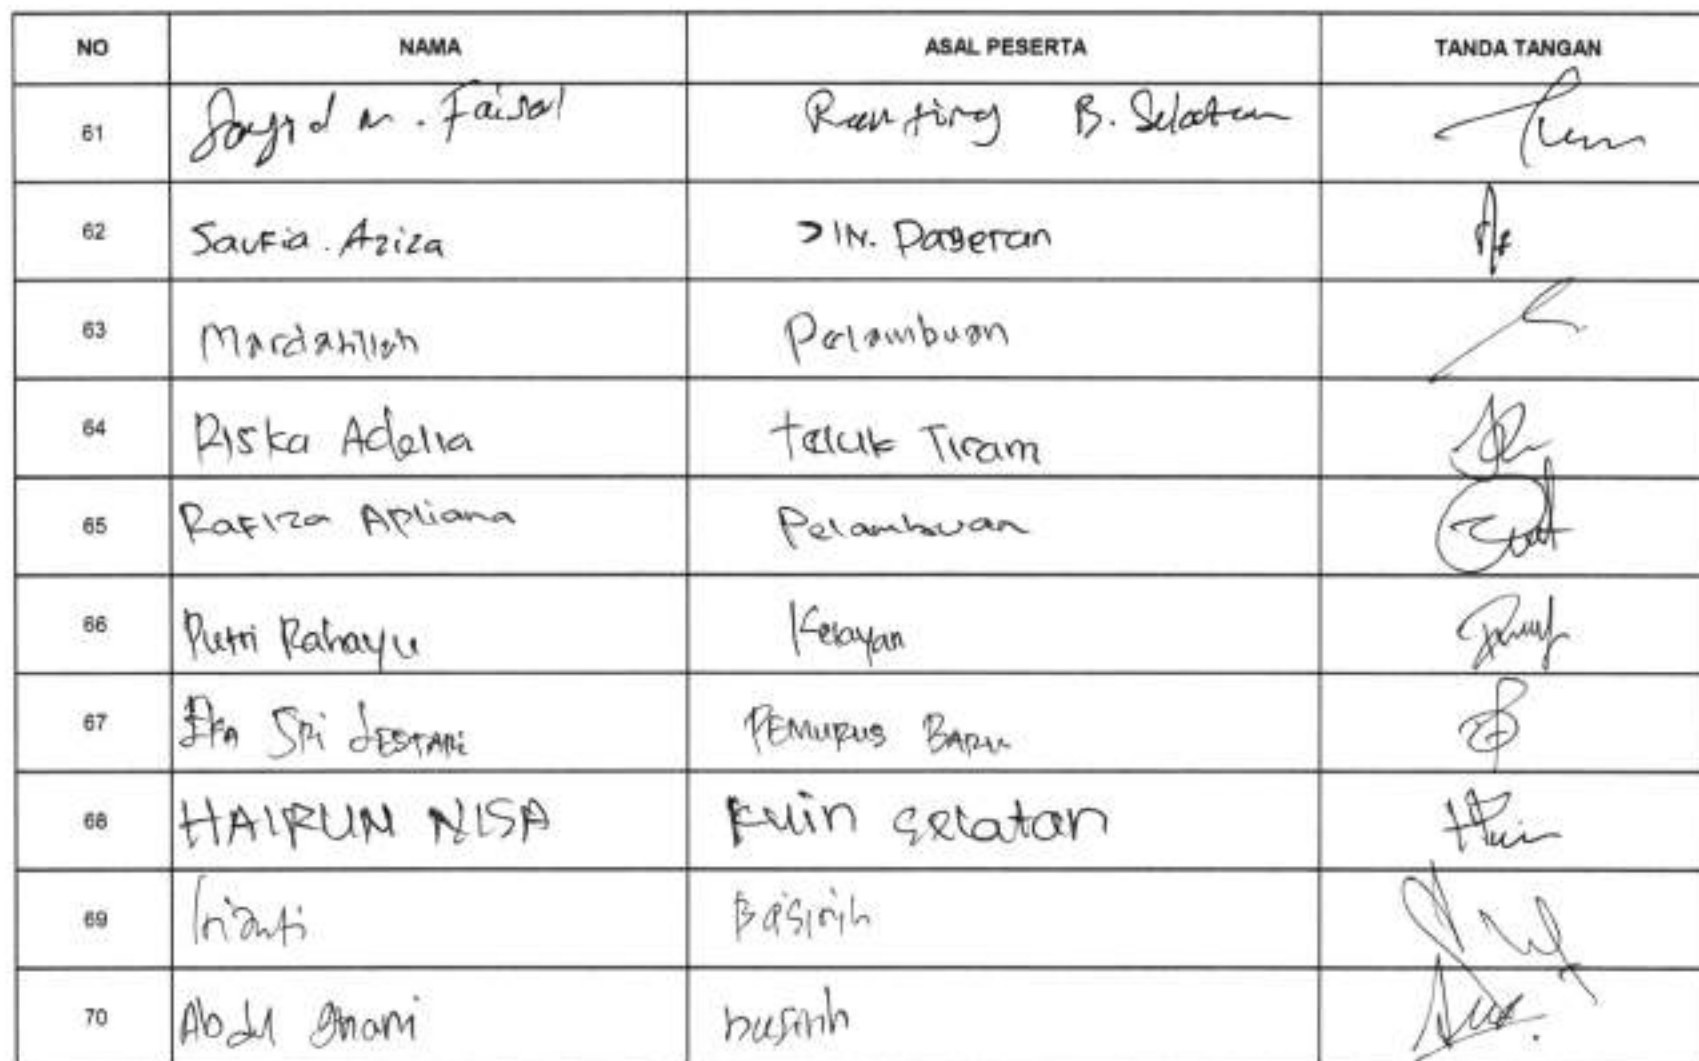 NO NAMA ASAL PESERTA TANDA TANGAN
61 Sayyid M. Faisal Ranting B. Selatan
62 Saufia. Aziza JLN. Pageran
63 Mardahliah Pelambuan
64 Riska Adelia Teluk Tiram
65 Rafiza Apliana Pelambuan
66 Putri Rahayu Kelayan
67 Eka Sri Lestari Pemurus Baru
68 HAIRUN NISA Kuin Selatan
69 Irianti Basirih
70 Abdul Ghani basirih